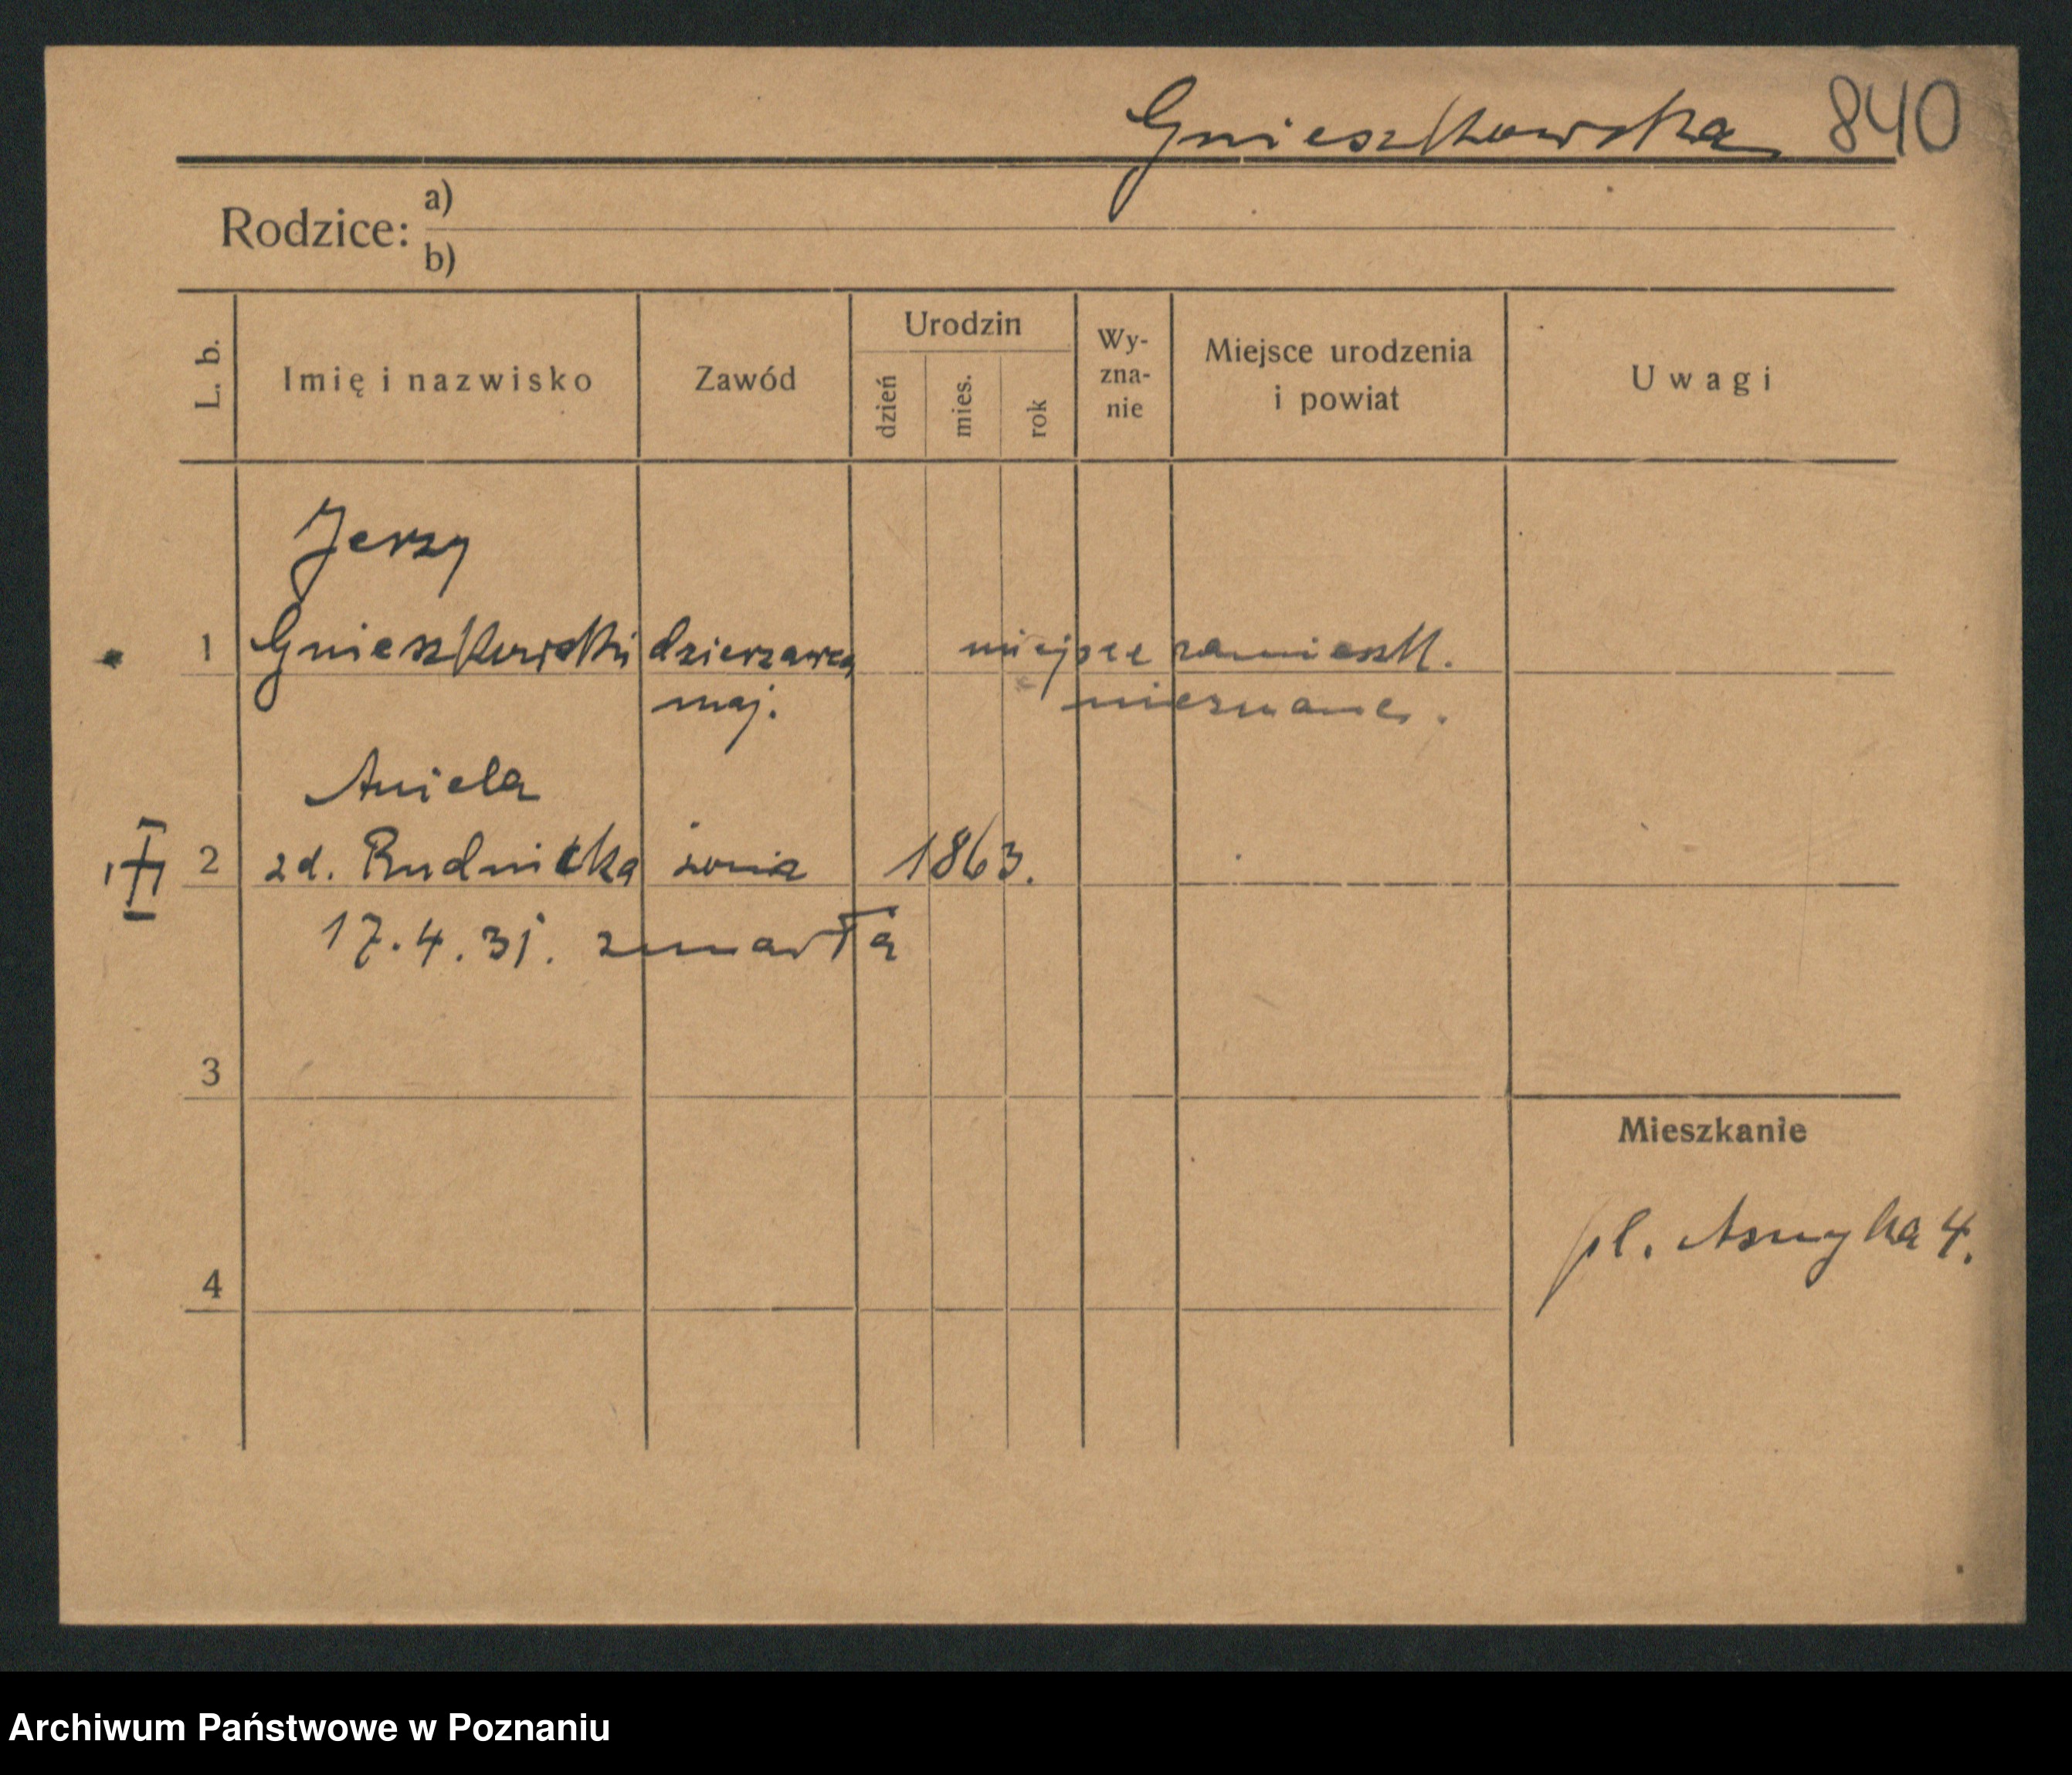 Gnieszkowska 840
Rodzice: a)
b)
L. b.
Imię i nazwisko
Zawód
Urodzin
dzień
mies.
rok
Wy-
zna-
nie
Miejsce urodzenia
i powiat
Uwagi
Jerzy
1 Gnieszkowski dzierzawca miejsce zamieszk.
maj. nieznane.
Aniela
2 zd. Rudnicka żona 1863.
17.4.31. zmarła
3
Mieszkanie
pl. Asnyka 4.
4
Archiwum Państwowe w Poznaniu